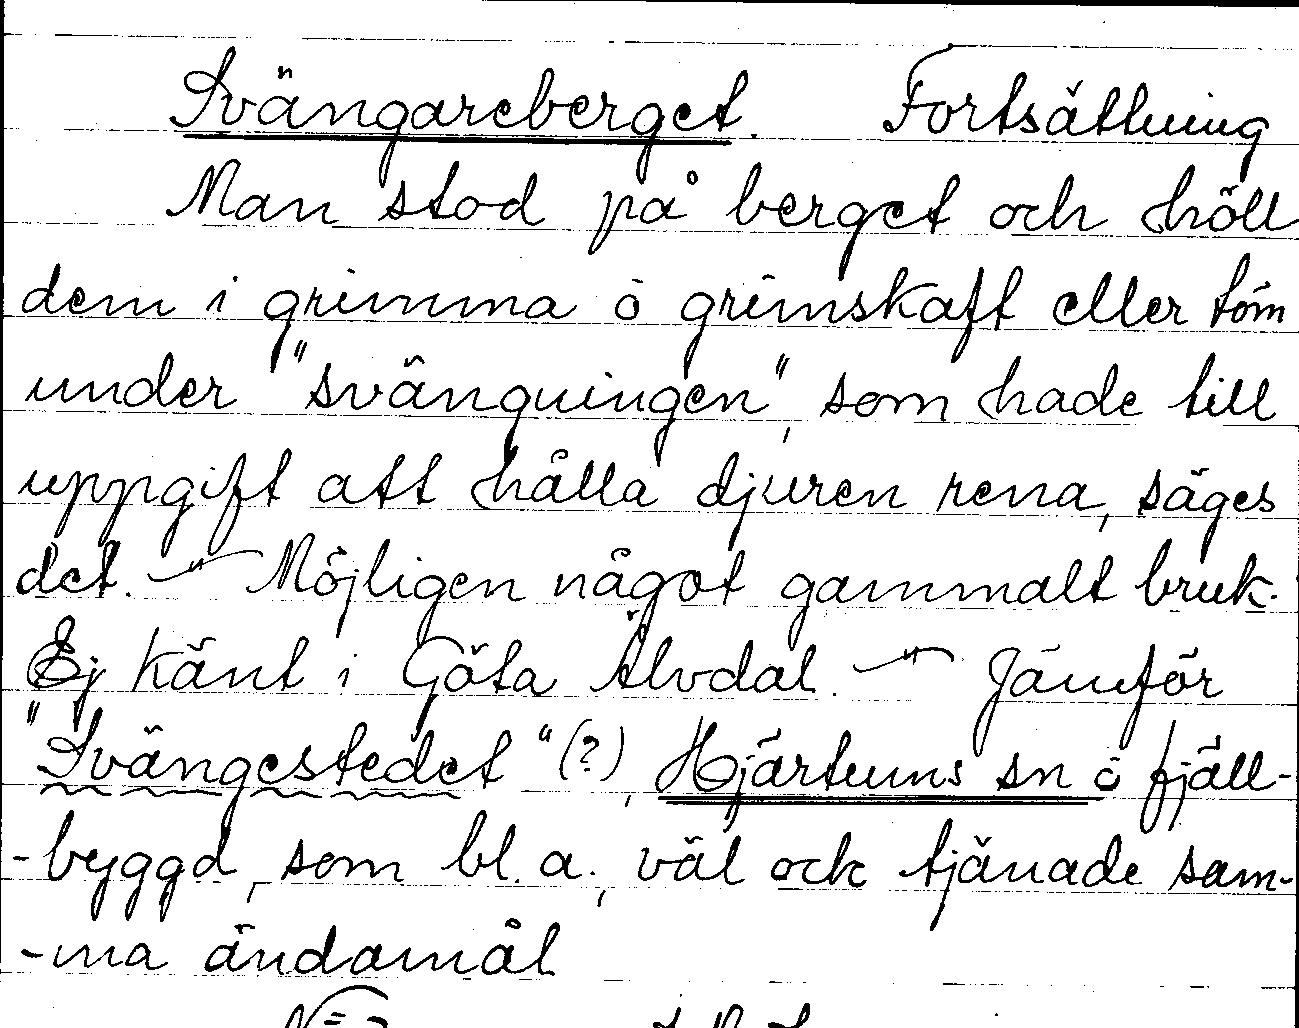 Svängareberget. Fortsättning
Man stod på berget och höll
dem i grimma o grimskaft eller töm
under "svängningen", som hade till
uppgift att hålla djuren rena, säges
det. — " — Möjligen något gammalt bruk.
Ej känt i Göta Älvdal. — " — Jämför
"Svängestedet" (?), Hjärtums sn o fjäll-
-byggd, som bl. a., väl ock tjänade sam-
-ma ändamål